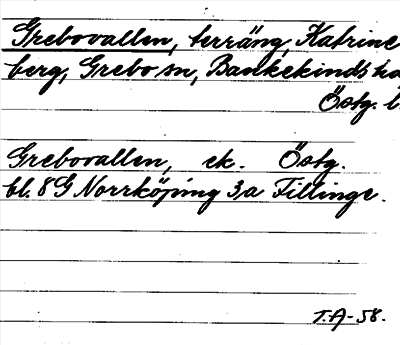 Grebovallen, terräng, Katrine
berg, Grebo sn, Bankekinds ha
Östg. l.
Grebovallen, ek. Östg.
bl. 8G Norrköping 3,a Fillinge.
T.A-58.